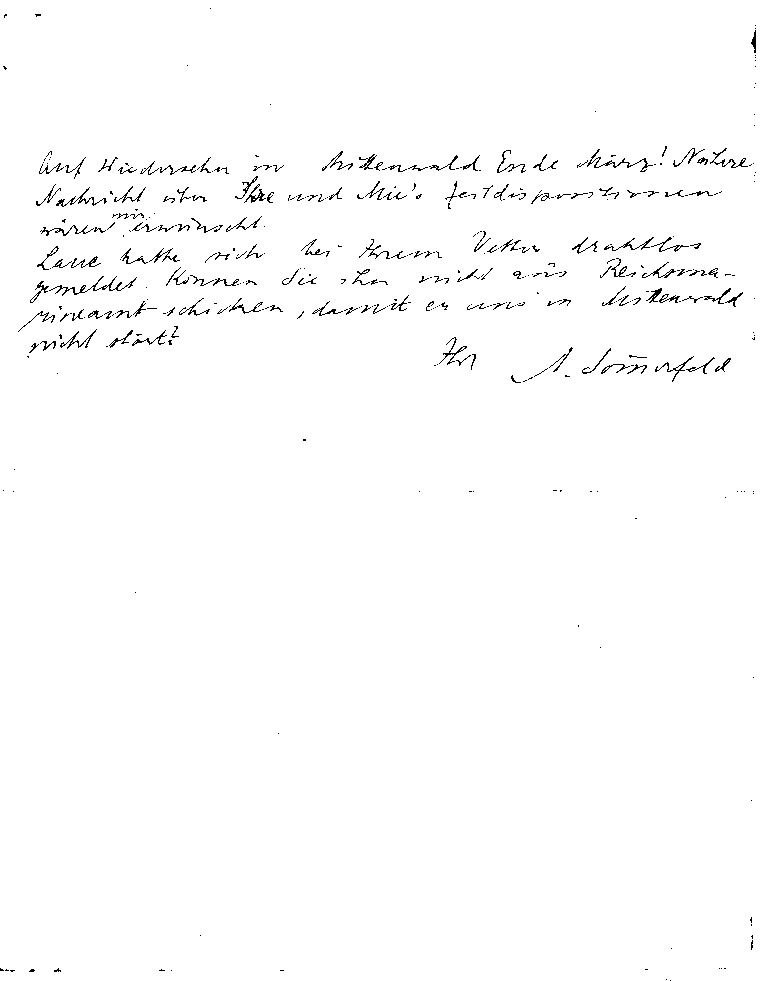 Auf Wiedersehn in Mittenwald Ende März! Nähere
Nachricht über Ihre und Mie's Zeitdispositionen
wären mir erwünscht.
Laue hatte sich bei Ihrem Vetter drahtlos
gemeldet. Können Sie ihn nicht ans Reichsma-
rineamt schicken, damit er uns in Mittenwald
nicht stört?
Ihr A. Som̄erfeld